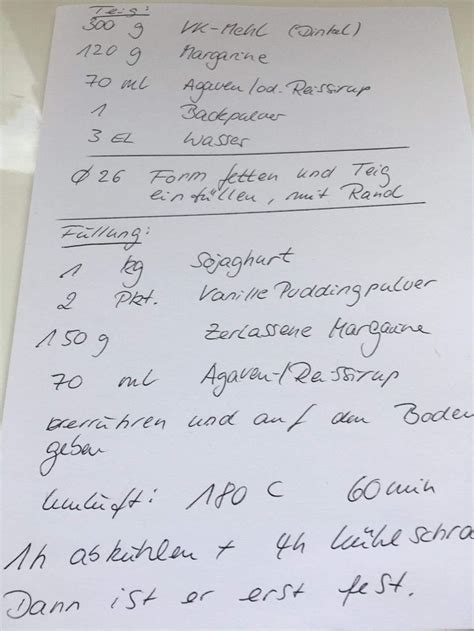 Teig:
300 g VK-Mehl (Dinkel)
120 g Margarine
70 ml Agaven/od. Reissirup
1 Backpulver
3 EL Wasser
Ø 26 Form fetten und Teig
einfüllen, mit Rand
Füllung:
1 kg Sojaghurt
2 Pkt. Vanille Puddingpulver
150 g Zerlassene Margarine
70 ml Agaven-/Reissirup
verrühren und auf den Boden
geben
Umluft: 180 C 60 min
1h abkühlen + 4h Kühlschra
Dann ist er erst fest.